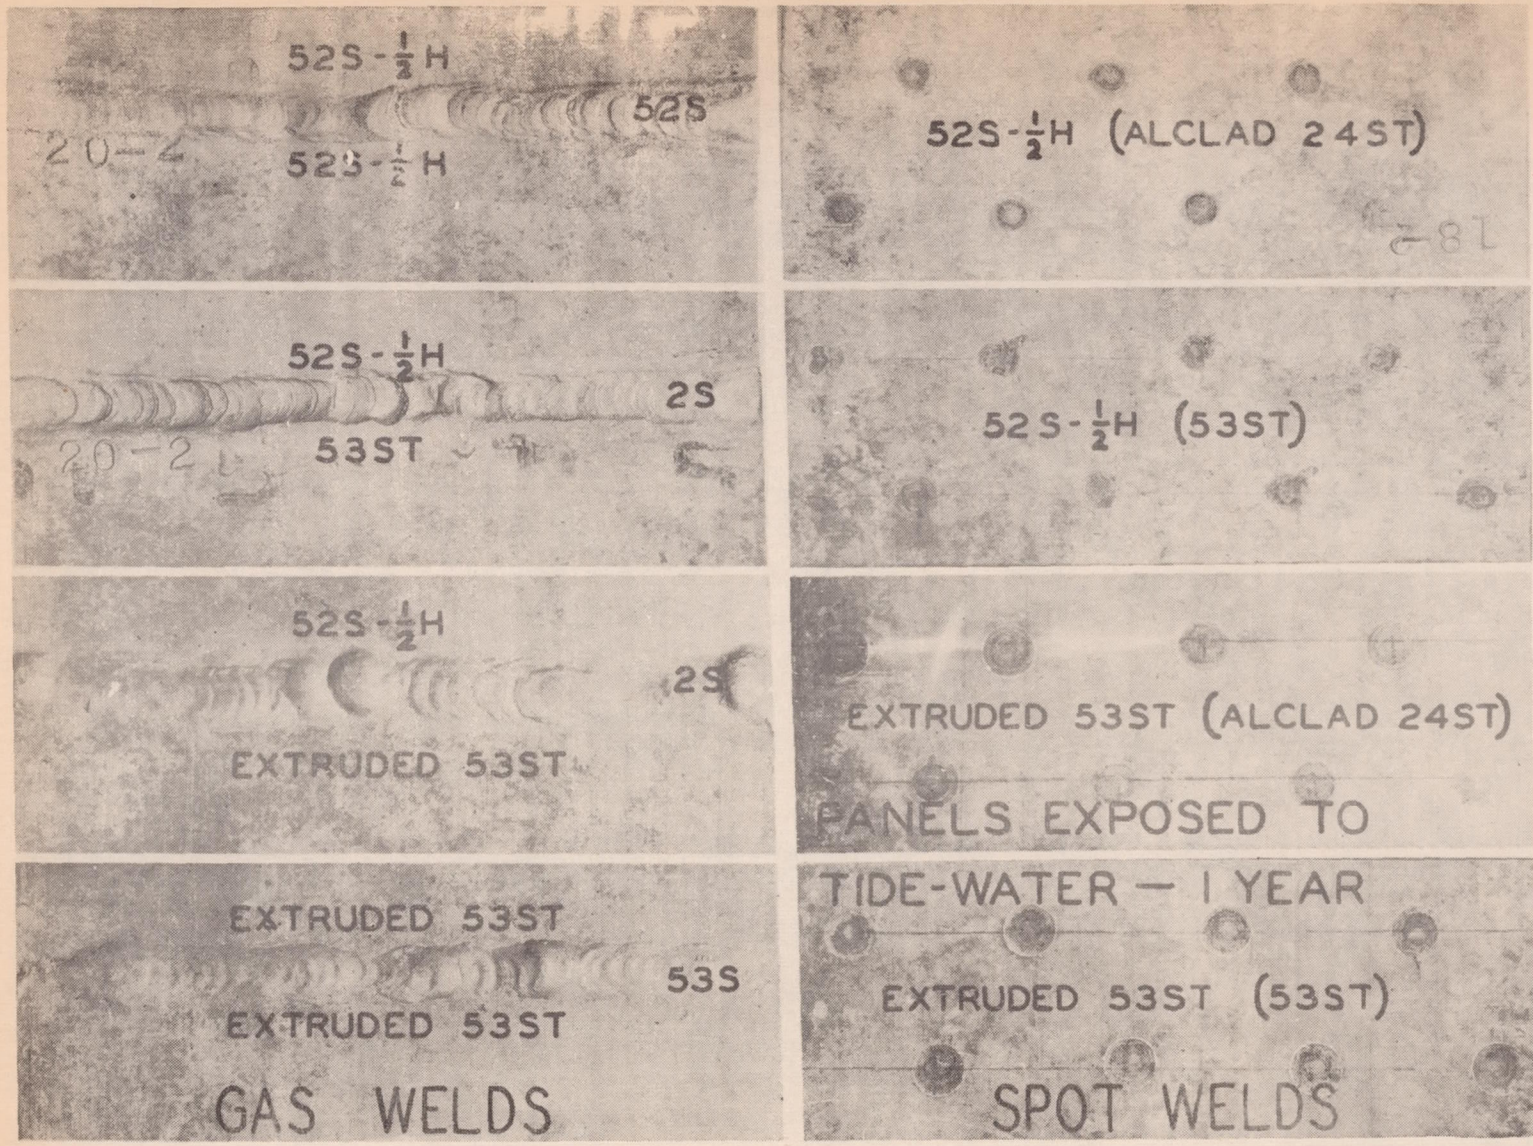 52S-½H
52S
20-2
52S-½H
52S-½H
2S
20-2
53ST
52S-½H
2S
EXTRUDED 53ST
EXTRUDED 53ST
53S
EXTRUDED 53ST
GAS WELDS
52S-½H (ALCLAD 24ST)
18-2
52S-½H (53ST)
EXTRUDED 53ST (ALCLAD 24ST)
PANELS EXPOSED TO
TIDE-WATER — 1 YEAR
EXTRUDED 53ST (53ST)
SPOT WELDS